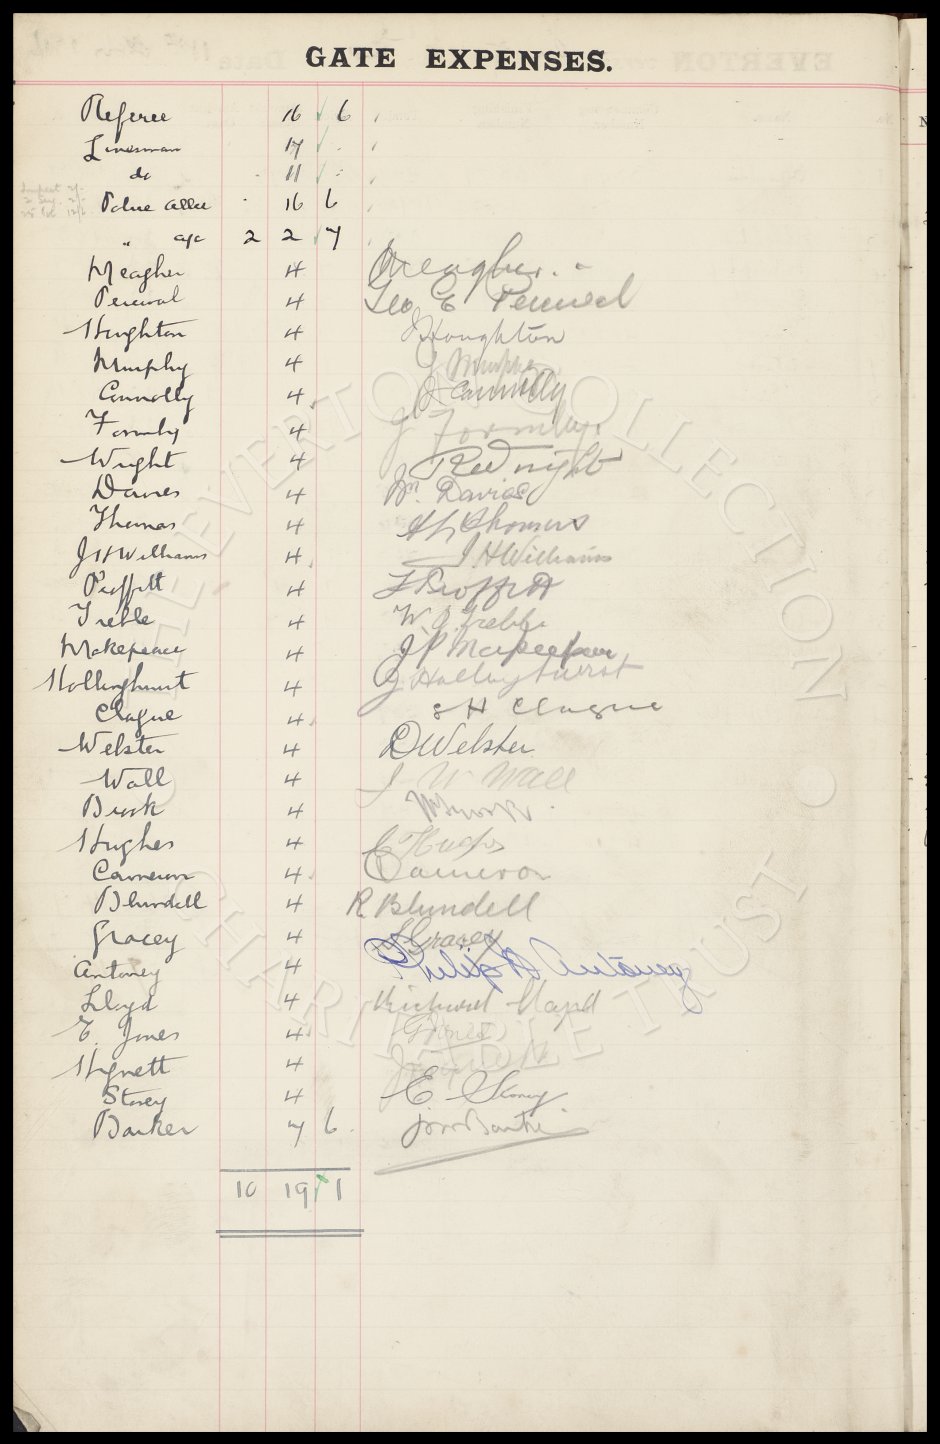 GATE EXPENSES.
Referee 16 6
Linesman 17 -
do - 11 -
Police allce 16 6
" a/c 2 2 7
Meagher 4 Meagher.
Percival 4 Geo E Percival
Houghton 4 J Houghton
Murphy 4 J Murphy
Connolly 4 J Connolly
Formby 4 J Formby.
Wright 4
Davies 4 Wm. Davies
Thomas 4 Thomas
J H Williams 4 J. H Williams
Proffitt 4 F Proffitt
Treble 4 W. J. Treble
Makepeace 4 J P Makepeace
Hollinghurst 4 G Hollinghurst
Clague 4 S H Clague
Webster 4 D Webster
Wall 4 J W Wall
Brook 4 Brook
Hughes 4 E Hughes
Cameron 4 Cameron
Blundell 4 R. Blundell
Gracey 4 Gracey
Antoney 4 Philip H Antoney
Lloyd 4 Richard Lloyd
E. Jones 4 E Jones
Hignett 4
Storey 4 E. Storey
Barker 7 6
10 19 1
THE EVERTON COLLECTION CHARITABLE TRUST